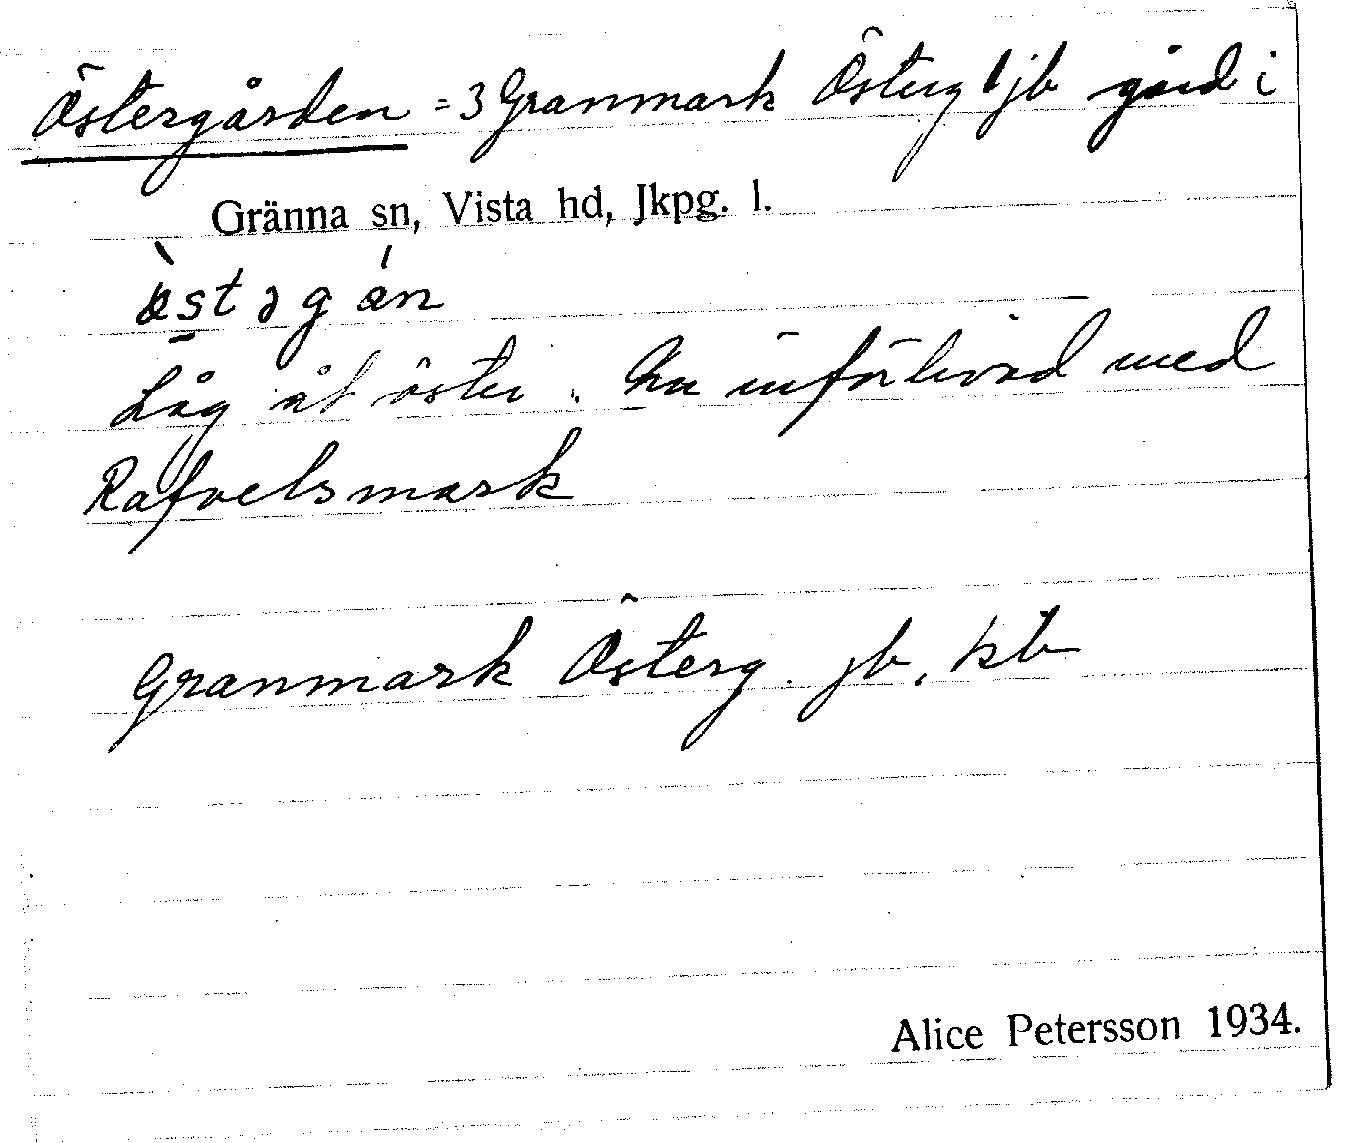 Östergården = 3 Granmark Österg 1 jb gård i
Gränna sn, Vista hd, Jkpg. l.
ö̀stəgán
Låg åt öster. Nu införlivad med
Rafvelsmark
Granmark Österg. jb, kb
Alice Petersson 1934.